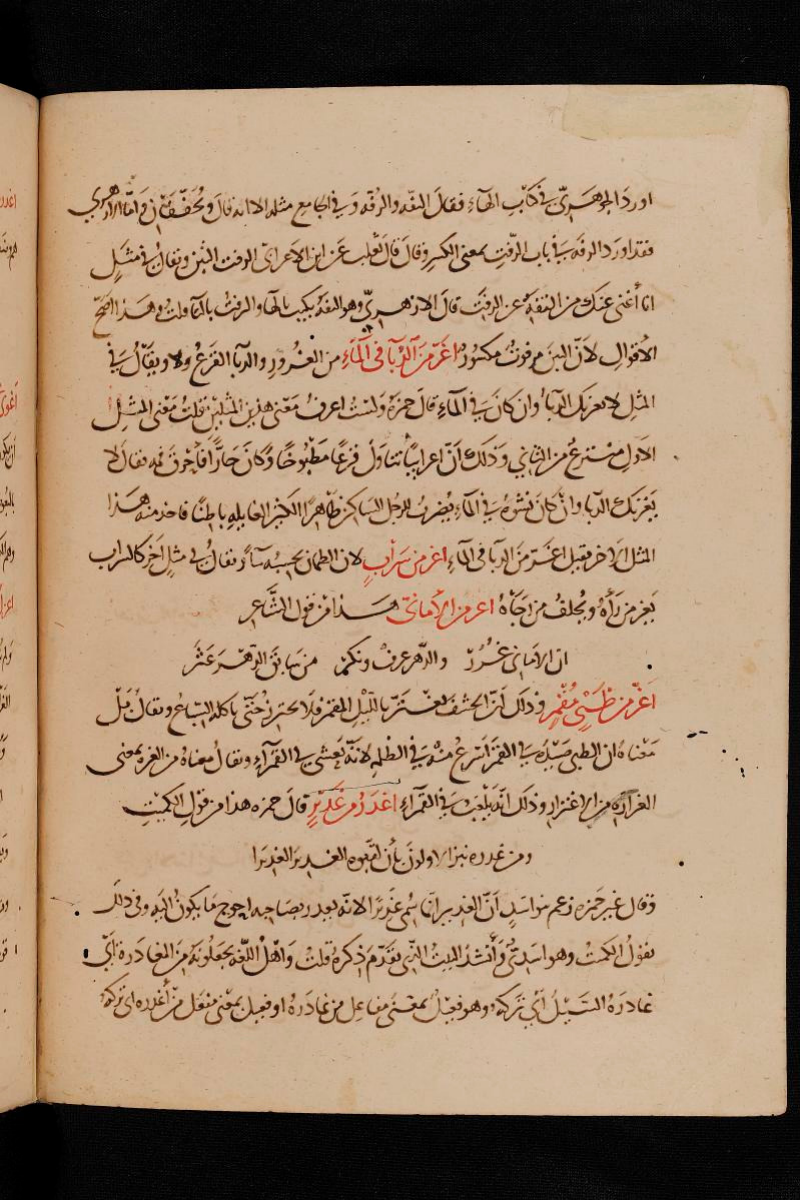 اورد الجوهري في كتاب الهاء فقال التفه والرفه وفي الجامع مثله الا انه قال ويخففان واما الازهري
فقد اورد الرفه في باب الرفت بمعنى الكسر وقال قال ثعلب عن ابن الاعرابي الرفت التبن ويقال في مثل
انا أغنى عنك من التفه عن الرفت قال الازهري والتفه يكتب بالهاء والرفت بالتاء قلت وهذا اصح
الاقوال لانّ التبن مرفوت مكسور اغرّ من الدّبّاء في المآءِ من الغرور والدبا القرع ولا ويقال في
المثل لا يغرنك الدبآء وان كان في المآء قال حمزه ولست اعرف معنى هذين المثلين قلت معنى المثل
الاول منتزع من الثاني وذلك أنّ اعرابياً تناول قرعًا مطبوخًا وكان حارًّا فأحرق فمه فقال لا
يغرنك الدبا وان كان نشوه في المآء يضرب للرجل الساكن ظاهرًا الكثير الغايله باطنًا فاخذ منه هذا
المثل الاخر فقيل اغرّ من الدبا في المآء اغر من سرابٍ لان الظمان يحسبه مآءً ويقال في مثل آخر كالسراب
يغر من رآه ويخلف من رجاه اغر من الأماني هذا من قول الشاعر
ان الاماني غررْ والدهر عرف ونكر من سابق الدهر عثر
اغرّ من ظبيٍ مقمرٍ وذلك أنّ الخشف يغترّ بالليل المقمر فلا يحترز حتّى يأكله السباع ويقال بل
معناه ان الظبي صيده في القمرآء اسرع منه في الظلمه لانّه يعشى في القمرآء ويقال معناه من الغره بمعنى
الغراره من الاغترار وذلك انّه يلعب في القمرآء اغدرُ من غديرٍ قال حمزه هذا من قول الكميت
ومن غدره نبز الاولون بأن لقبوه الغدير الغديرا
وقال غير حمزه زعم بنو اسدٍ أنّ الغدير انّما سُمي غديرًا لانّه يغدر بصاحبه احوج ما يكون اليه وفي ذلك
يقول الكميت وهو اسديّ وأنشد البيت الذي تقدّم ذكره قلت وأهل اللغه يجعلونه من المغادرة أي
غادره السيل أي تركه وهو فعيلٌ بمعنى مفاعل من غادره او فعيل بمعنى مفعل من أغدره اي تركه